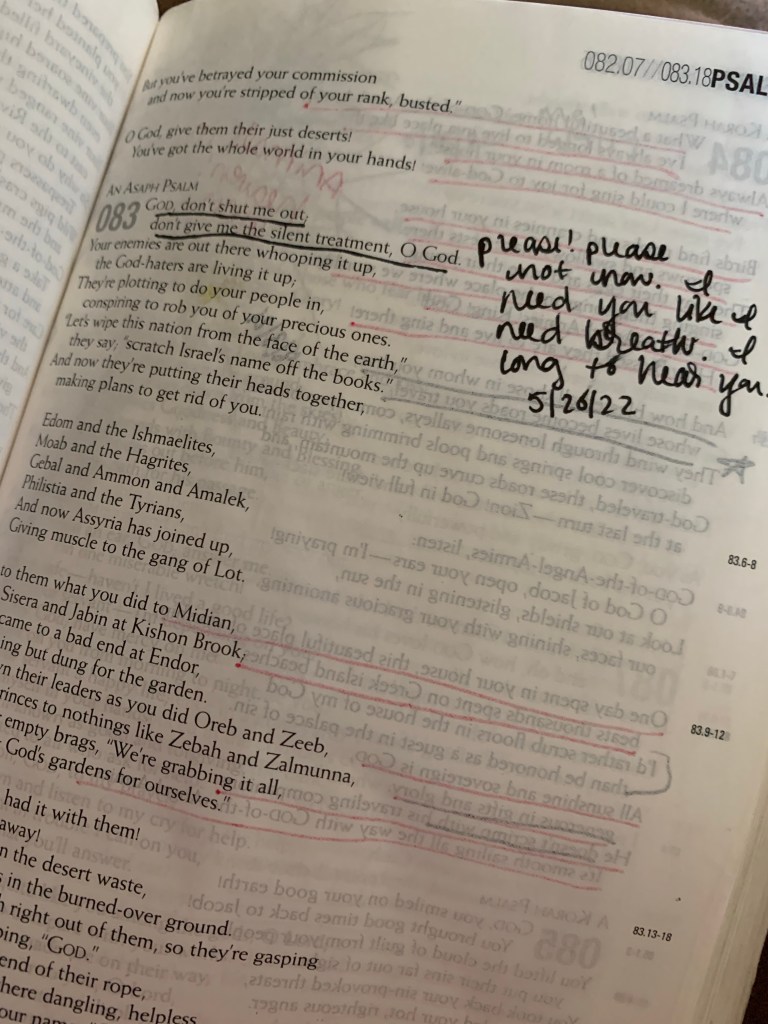 082.07//083.18PSAL
But you've betrayed your commission
and now you're stripped of your rank, busted."
O God, give them their just deserts!
You've got the whole world in your hands!
AN ASAPH PSALM
083 GOD, don't shut me out;
don't give me the silent treatment, O God.
Your enemies are out there whooping it up,
the God-haters are living it up;
They're plotting to do your people in,
conspiring to rob you of your precious ones.
"Let's wipe this nation from the face of the earth,"
they say; "scratch Israel's name off the books."
And now they're putting their heads together,
making plans to get rid of you.
please! please
not now. I
need you like I
need breath. I
long to hear you.
5/26/22
Edom and the Ishmaelites,
Moab and the Hagrites,
Gebal and Ammon and Amalek,
Philistia and the Tyrians,
And now Assyria has joined up,
Giving muscle to the gang of Lot.
83.6-8
to them what you did to Midian,
Sisera and Jabin at Kishon Brook;
came to a bad end at Endor,
ing but dung for the garden.
n their leaders as you did Oreb and Zeeb,
rinces to nothings like Zebah and Zalmunna,
empty brags, "We're grabbing it all,
God's gardens for ourselves."
83.9-12
had it with them!
away!
n the desert waste,
s in the burned-over ground.
right out of them, so they're gasping
ping, "GOD."
end of their rope,
here dangling, helpless
83.13-18